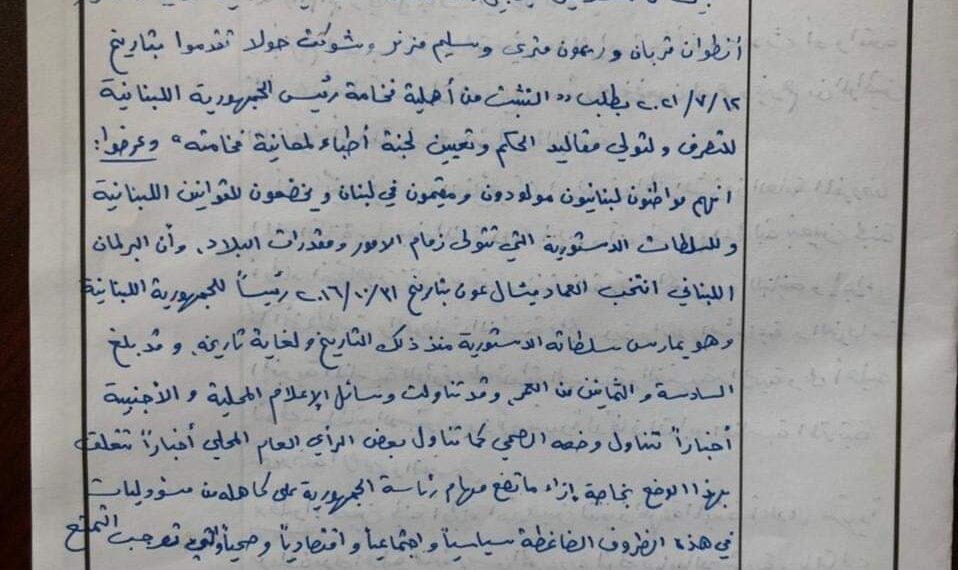 أنطوان قربان وريمون متري وسليم مزنر وشوكت حولا تقدموا بتاريخ
٢٠٢١/٧/١٢ بطلب "التثبت من أهلية فخامة رئيس الجمهورية اللبنانية
للتصرف ولتولي مقاليد الحكم وتعيين لجنة أطباء لمعاينة فخامته" وعرضوا:
أنهم مواطنون لبنانيون مولودون ومقيمون في لبنان ويخضعون للقوانين اللبنانية
وللسلطات الدستورية التي تتولى زمام الامور ومقدرات البلاد، وأن البرلمان
اللبناني انتخب العماد ميشال عون بتاريخ ٢٠١٦/١٠/٣١ رئيساً للجمهورية اللبنانية
وهو يمارس سلطاته الدستورية منذ ذلك التاريخ ولغاية تاريخه، وقد بلغ
السادسة والثمانين من العمر، وقد تناولت وسائل الإعلام المحلية والأجنبية
أخباراً تتناول وضعه الصحي كما تناول بعض الرأي العام المحلي أخباراً تتعلق
بهذا الوضع بخاصة إزاء ما تضع مهام رئاسة الجمهورية على كاهله من مسؤوليات
في هذه الظروف الضاغطة سياسياً واجتماعياً واقتصادياً وصحياً والتي توجب التمتع